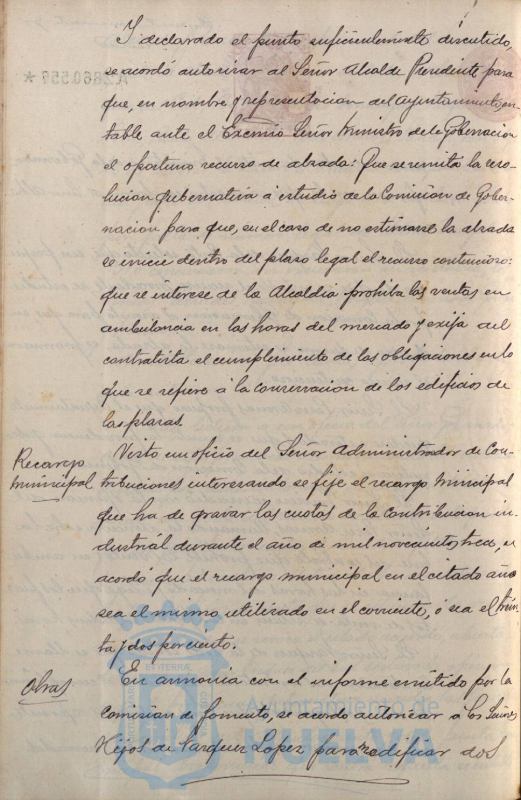 Y declarado el punto suficientemente discutido,
se acordó autorizar al Señor Alcalde Presidente para
que, en nombre y representacion del Ayuntamiento, en-
table ante el Excmo Señor Ministro de la Gobernacion
el oportuno recurso de alzada: Que se remita la reso-
lucion gubernativa á estudio de la Comision de Gober-
nacion para que, en el caso de no estimarse la alzada
se inicie dentro del plazo legal el recurso contencioso:
que se interese de la Alcaldia prohiba las ventas en
ambulancia en las horas del mercado y exija del
contratista el cumplimiento de las obligaciones en lo
que se refiere á la conservacion de los edificios de
las plazas.
Recargo
municipal
Visto un oficio del Señor Administrador de Con-
tribuciones interesando se fije el recargo municipal
que ha de gravar las cuotas de la contribucion in-
dustrial durante el año de mil novecientos trece, se
acordó que el recargo municipal en el citado año
sea el mismo utilizado en el corriente, ó sea el trein-
ta y dos por ciento.
Obras
En armonia con el informe emitido por la
comision de fomento, se acordo autorizar á los Señores
Hijos de Vazquez Lopez para reedificar dos
A2860.557 *
Ayuntamiento de
HUELVA